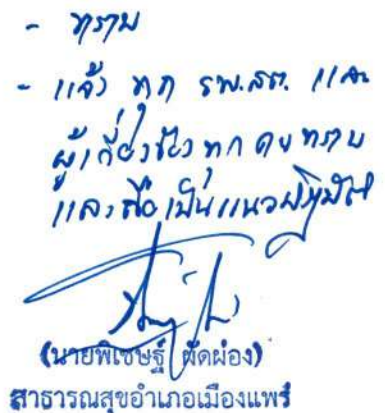 - ทราบ
- แจ้ง ทุก รพ.สต. และ
ผู้เกี่ยวข้องทุกคนทราบ
และถือเป็นแนวปฏิบัติ
(นายพิเชษฐ์ ผัดผ่อง)
สาธารณสุขอำเภอเมืองแพร่